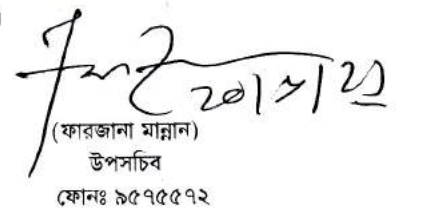 (ফারজানা মান্নান)
উপসচিব
ফোনঃ ৯৫৭৫৫৭২